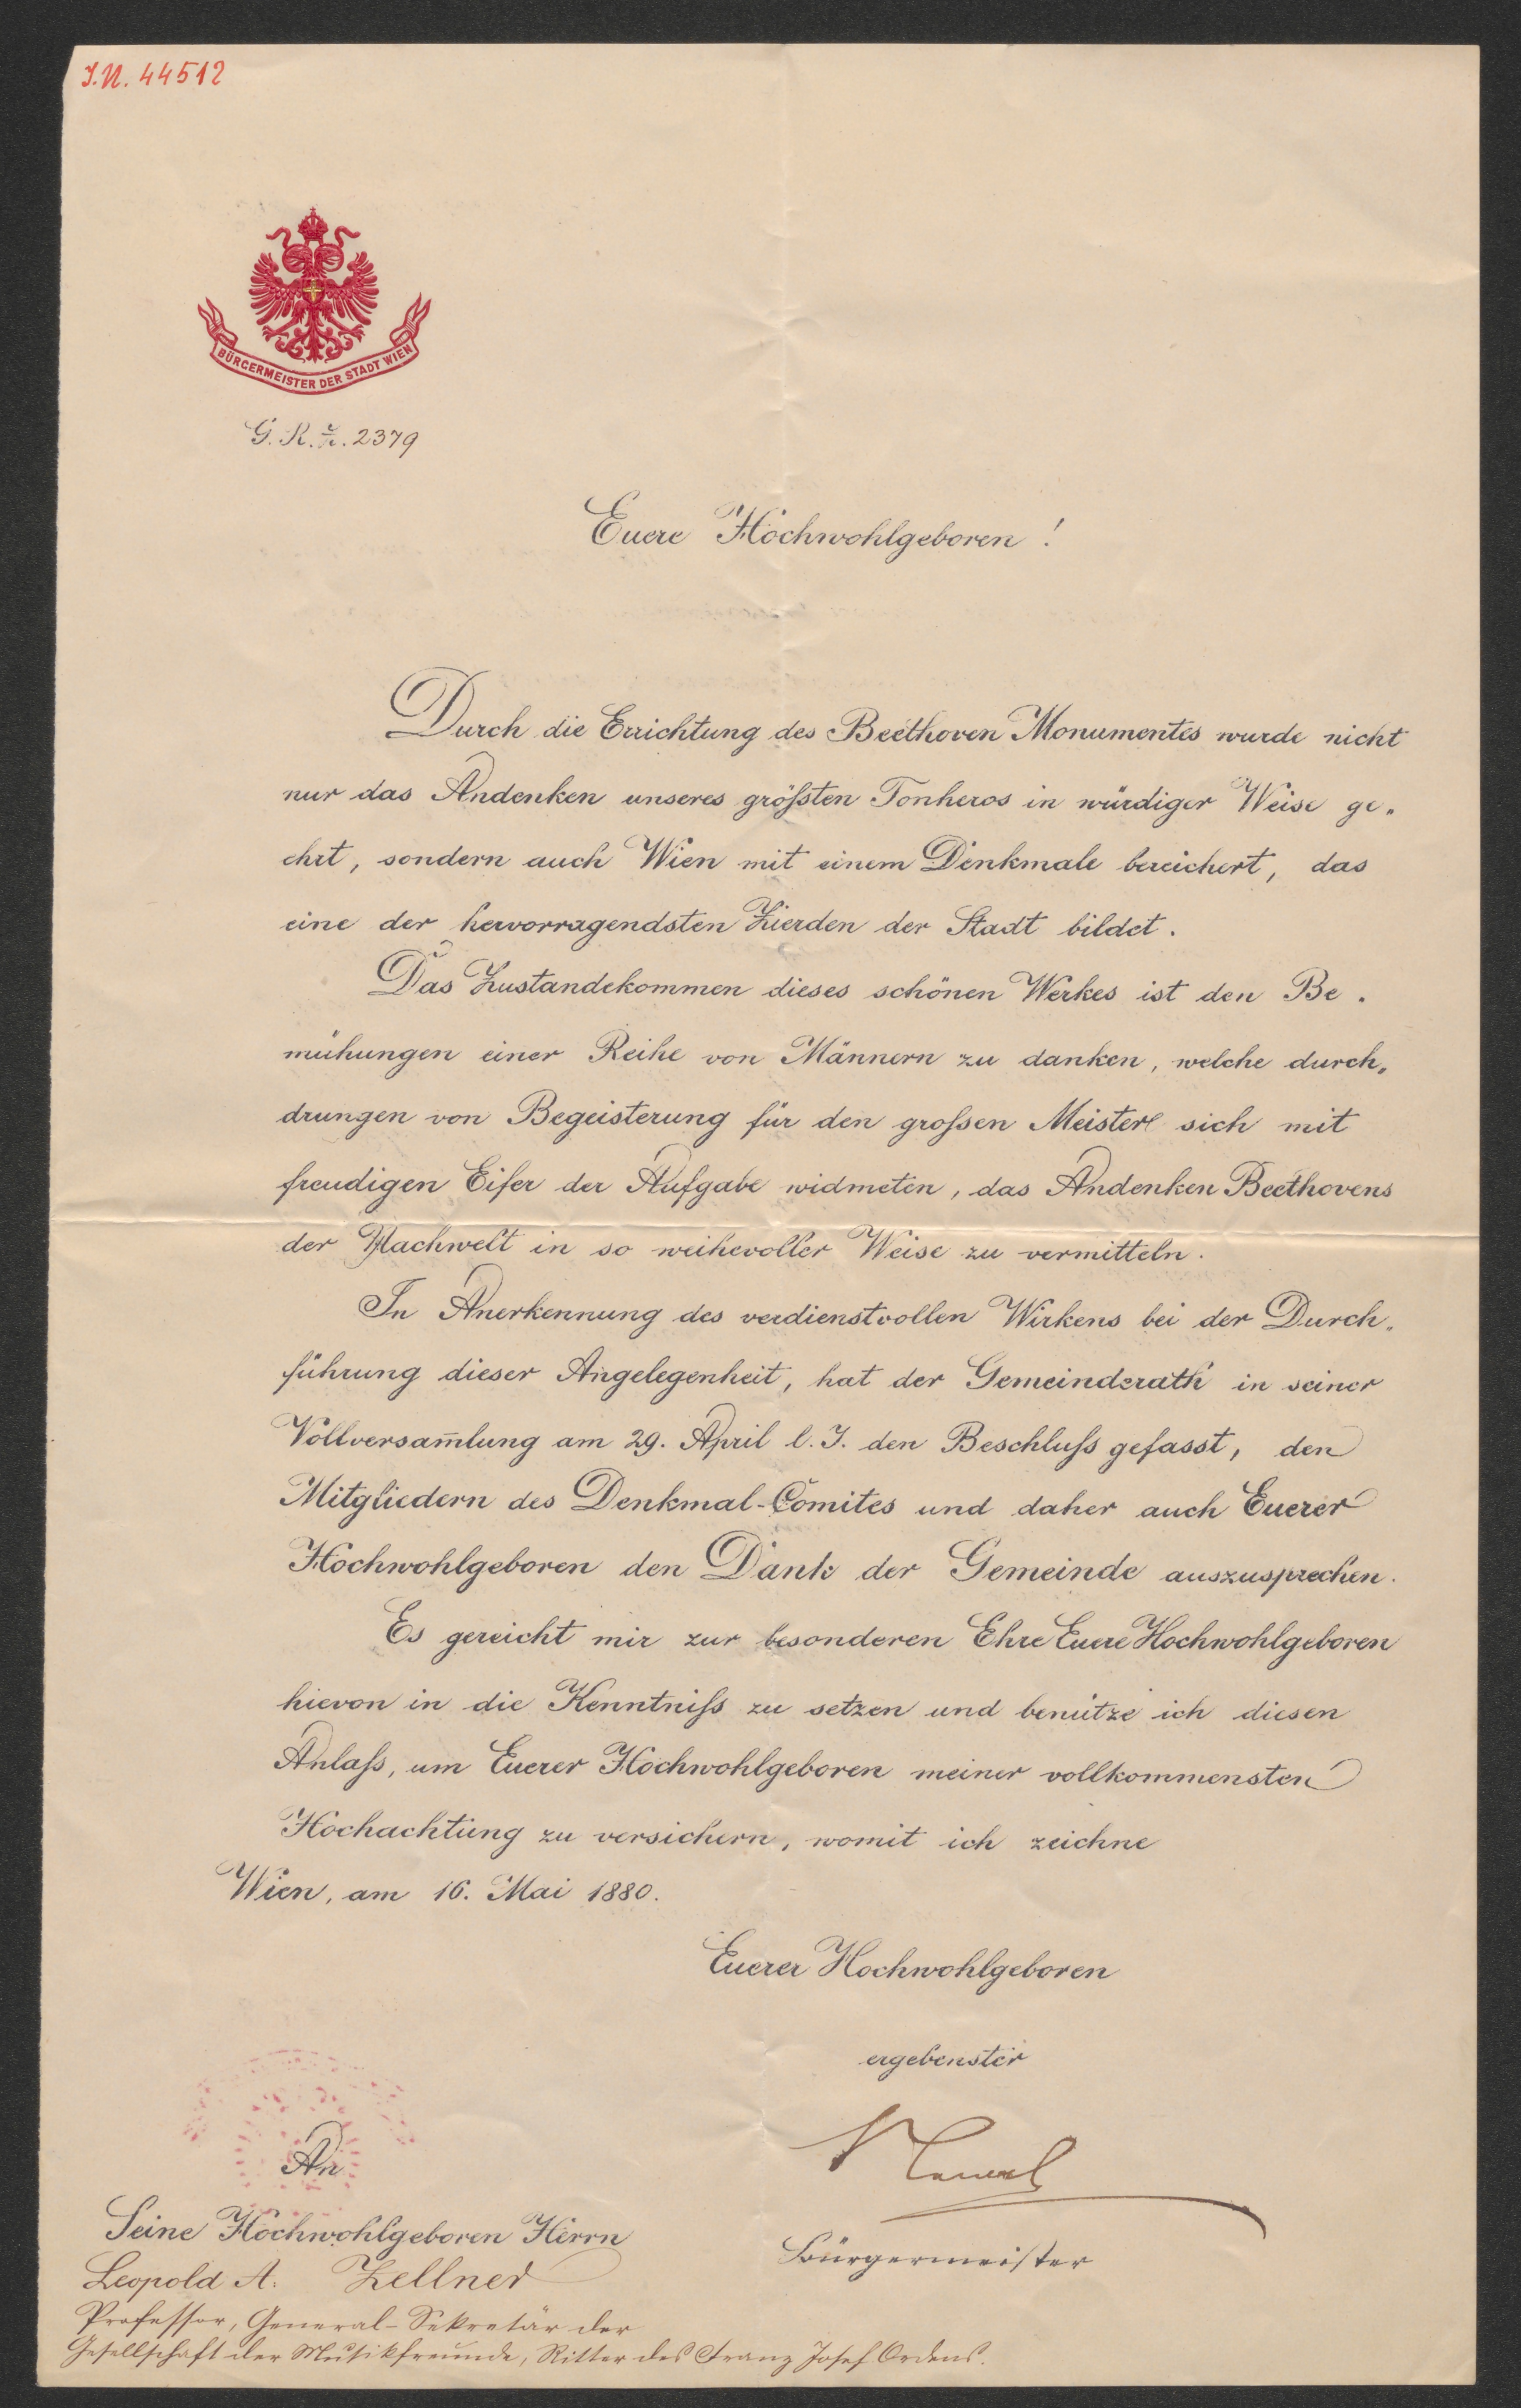 I.N. 44512
BÜRGERMEISTER DER STADT WIEN
G. R. Z. 2379
Euere Hochwohlgeboren !
Durch die Errichtung des Beethoven Monumentes wurde nicht
nur das Andenken unseres größten Tonheros in würdiger Weise ge-
ehrt, sondern auch Wien mit einem Denkmale bereichert, das
eine der hervorragendsten Zierden der Stadt bildet.
Das Zustandekommen dieses schönen Werkes ist den Be-
mühungen einer Reihe von Männern zu danken, welche durch-
drungen von Begeisterung für den großen Meister sich mit
freudigen Eifer der Aufgabe widmeten, das Andenken Beethovens
der Nachwelt in so weihevoller Weise zu vermitteln.
In Anerkennung des verdienstvollen Wirkens bei der Durch-
führung dieser Angelegenheit, hat der Gemeinderath in seiner
Vollversam̅lung am 29. April l. J. den Beschluß gefasst, den
Mitgliedern des Denkmal-Comites und daher auch Euerer
Hochwohlgeboren den Dank der Gemeinde auszusprechen.
Es gereicht mir zur besonderen Ehre Euere Hochwohlgeboren
hievon in die Kenntniß zu setzen und benütze ich diesen
Anlaß, um Euerer Hochwohlgeboren meiner vollkommensten
Hochachtung zu versichern, womit ich zeichne
Wien, am 16. Mai 1880.
Euerer Hochwohlgeboren
ergebenster
Newald
Bürgermeister
An
Seine Hochwohlgeboren Herrn
Leopold A. Zellner
Professor, General-Sekretär der
Gesellschaft der Musikfreunde, Ritter des Franz Josef Ordens.